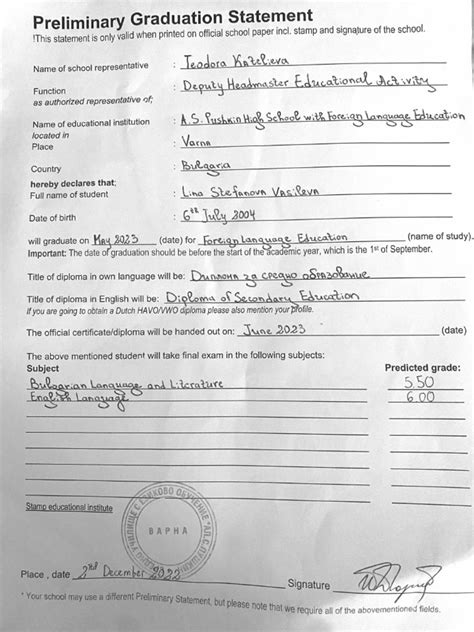 Preliminary Graduation Statement
!This statement is only valid when printed on official school paper incl. stamp and signature of the school.
Name of school representative : Teodora Kozelieva
Function : Deputy Headmaster Educational Activity
as authorized representative of;
Name of educational institution : A.S. Pushkin High School with Foreign Language Education
located in
Place : Varna
Country : Bulgaria
hereby declares that:
Full name of student : Lina Stefanova Vasileva
Date of birth : 6th July 2004
will graduate on May 2023 (date) for Foreign Language Education (name of study).
Important: The date of graduation should be before the start of the academic year, which is the 1st of September.
Title of diploma in own language will be: Диплома за средно образование
Title of diploma in English will be: Diploma of Secondary Education
If you are going to obtain a Dutch HAVO/VWO diploma please also mention your profile.
The official certificate/diploma will be handed out on: June 2023 (date)
The above mentioned student will take final exam in the following subjects:
Subject Predicted grade:
Bulgarian Language and Literature 5.50
English Language 6.00
Stamp educational institute
ВАРНА
Place , date 2nd December 2022
Signature
* Your school may use a different Preliminary Statement, but please note that we require all of the abovementioned fields.